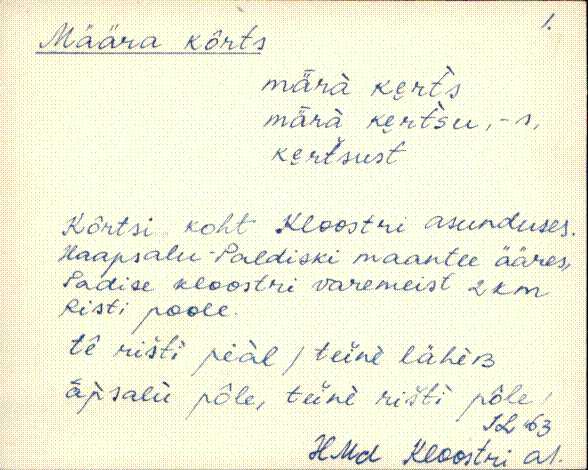 1.
Määra kõrts
märà kẹrt̀s
märà kẹrt̀su, -s,
kẹrt̀sust
Kõrtsi koht Kloostri asunduses.
Haapsalu-Paldiski maantee ääres,
Padise kloostri varemeist 2 km
Risti poole.
tê rišti peàl / teìne lähèʙ
āpsalù pôle, teìne rišti pôle /
SL 63
HMd Kloostri al.